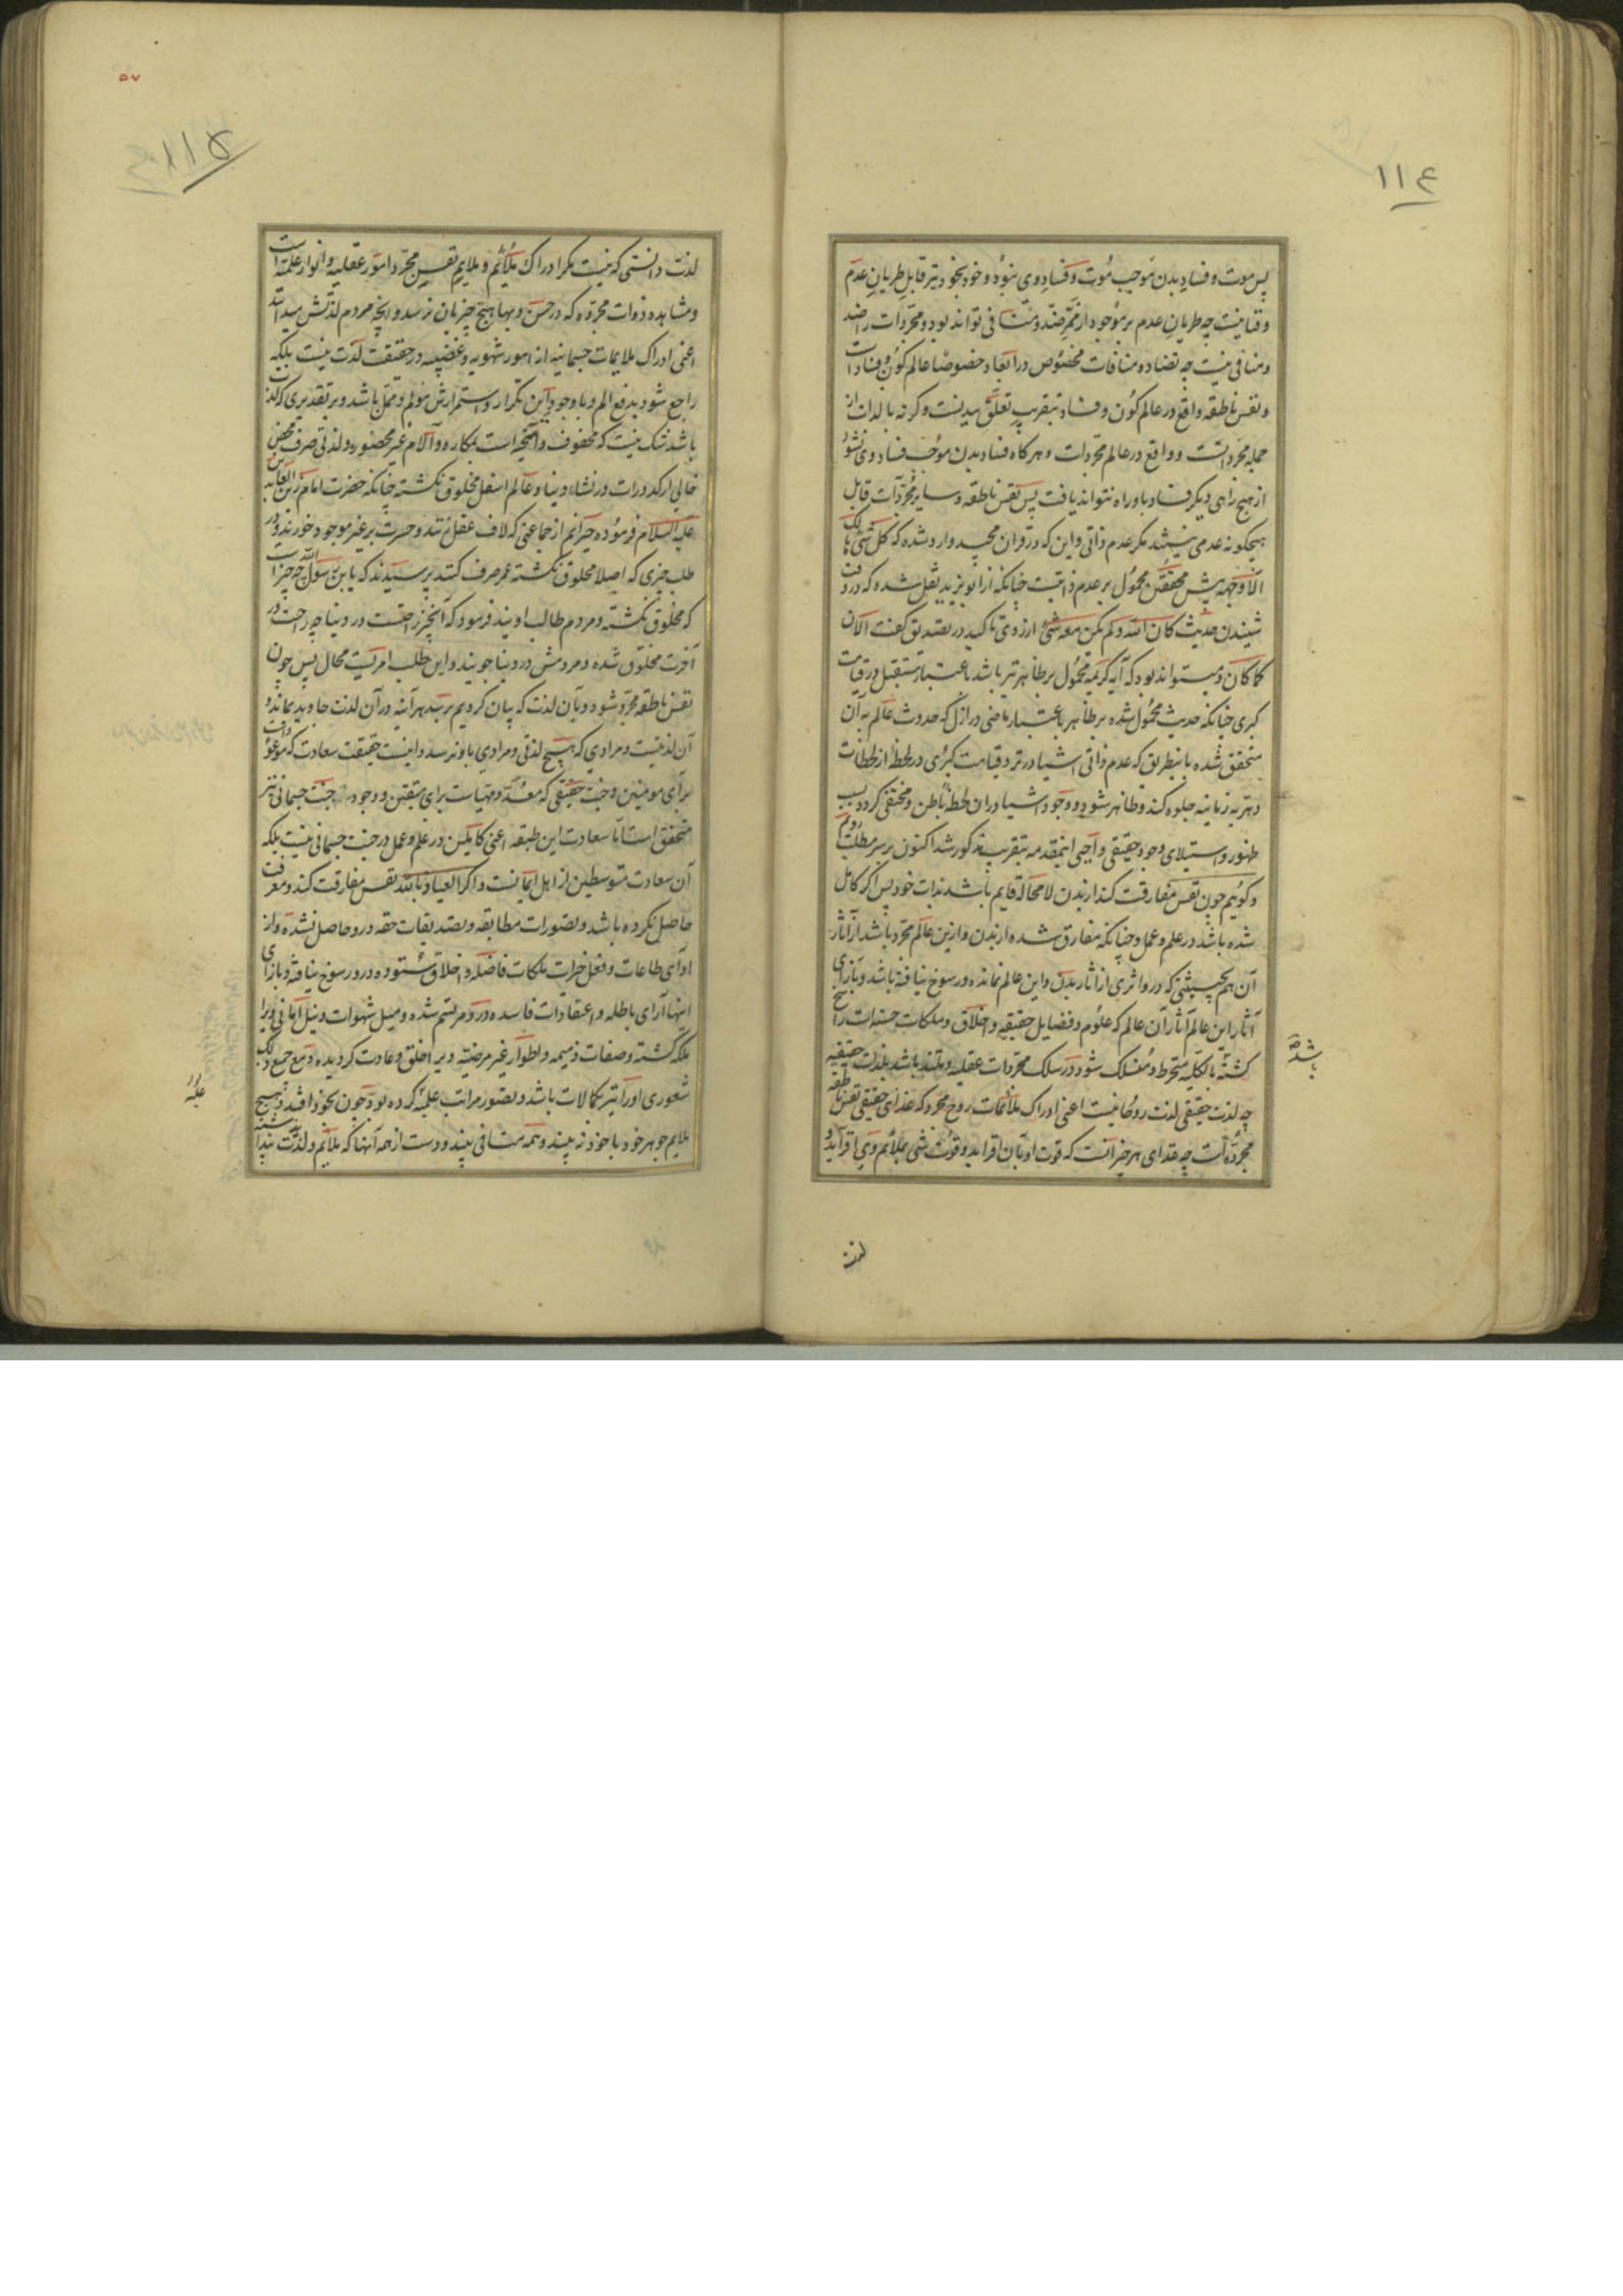 ۱۱۴
پس موت و فساد بدن موجب موت و فساد وی نبود و خود بخود نیز قابل طریان عدم
و فنا نیست چه طریان عدم بر موجود از ممر ضد و منافی تواند بود و مجردات را ضد
و منافی نیست چه تضاد و منافات مخصوص در ابعاد خصوصا عالم کون و فسادات
و نفس ناطقه واقع در عالم کون و فساد بتقریب تعلق ببدنست و گرنه بالذات از
جمله مجرداتست و واقع در عالم مجردات و هرگاه فساد بدن موجب فساد وی نشود
از هیچ راهی دیگر فساد باو راه نتواند یافت پس نفس ناطقه و سایر مجردات قابل
هیچگونه عدمی نیستند مگر عدم ذاتی و این که در قران مجید وارد شده که کل شیء هالک
الا وجهه پیش محققین محمول بر عدم ذاتیست چنانکه از ابو یزید نقل شده که در وقت
شنیدن حدیث کان الله و لم یکن معه شیء از روی تاکید در تصدیق گفت الآن
کما کان و میتواند بود که آیه کریمه محمول بر ظاهر نیز باشد باعتبار مستقبل در قیامت
کبری چنانکه حدیث محمول شده بر ظاهر باعتبار ماضی در ازل که حدوث عالم به آن
متحقق شده باینطریق که عدم ذاتی اشیا در نزد قیامت کبری در لحظهٔ از لحظات
دهریه زمانیه جلوه کند و ظاهر شود و وجود اشیا در ان لحظه باطن و مختفی گردد بسبب
ظهور و استیلای وجود حقیقی واجبی اینمقدمه بتقریب مذکور شد اکنون بر سر مطلب رویم
و گوئیم چون نفس مفارقت کند از بدن لامحاله قایم باشد بذات خود پس اگر کامل
شده باشد در علم و عمل و چنانکه مفارق شده از بدن و ازین عالم مجرد باشد از آثار
آن هم بحیثیتی که در و اثری از اثار بدن و این عالم نمانده و رسوخ نیافته باشد و بازای
آثار این عالم آثار آن عالم که علوم و فضایل حقیقیه و اخلاق و ملکات حسنه است راسخ
گشته بالکلیه منخرط و منسلک شود در سلک مجردات عقلیه و ملتذ باشد بلذت حقیقیه
باشد
چه لذت حقیقی لذت روحانیست اعنی ادراک ملائمات روح مجرد که غذای حقیقی نفس ناطقه
مجرده است چه غذای هر چیز آنست که قوت او بآن افزاید و قوت شی بملائم وی افزاید و
لذت
۵۷
۱۱۵
لذت دانستی که نیست مگر ادراک ملائم و ملایم نفس مجرد امور عقلیه و انوار علمیه است
و مشاهده ذوات مجرده که در حسن و بها هیچ چیز بآن نرسد و آنچه مردم لذتش میدانند
اعنی ادراک ملایمات جسمانیه از امور شهویه و غضبیه در حقیقت لذت نیست بلکه
راجع شود بدفع الم و با وجود این تکرار و استمرارش مولم و ممل باشد و بر تقدیری که لذت
باشد شک نیست که محفوف و آمیخته است بمکاره و آلام غیر محصوره و لذتی صرف محض
خالی از کدورات در نشاه دنیا و عالم اسفل مخلوق نگشته چنانکه حضرت امام زین العابدین
علیه السلام فرموده حیرانم از جماعتی که لاف عقل زنند و حسرت بر غیر موجود خورند و در
طلب چیزی که اصلا مخلوق نگشته عمر صرف کنند پرسیدند که یا بن رسول الله چه چیز است
که مخلوق نگشته و مردم طالب اویند فرمود که آنچیز راحتست در دنیا چه راحت در
آخرت مخلوق شده و مردمش در دنیا جویند و این طلب امریست محال پس چون
نفس ناطقه مجرد شود و بآن لذت که بیان کردیم برسد هر آینه در آن لذت جاوید بماند و
آن لذتیست و مرادی که هیچ لذتی و مرادی باو نرسد و اینست حقیقت سعادت که موعود است
برای مومنین و جنت حقیقی که معد و مهیاست برای متقین و وجود جنت جسمانی نیز
متحقق است اما سعادت این طبقه اعنی کاملین در علم و عمل در جنت جسمانی نیست بلکه
آن سعادت متوسطین از اهل ایمانست و اگر العیاذ بالله نفس مفارقت کند و معرفت
حاصل نکرده باشد و تصورات مطابقه و تصدیقات حقه در و حاصل نشده و از
ادای طاعات و فعل خیرات ملکات فاضله و اخلاق ستوده در و رسوخ نیافته و بازای
اینها آرای باطله و اعتقادات فاسده در و مرتسم شده و میل شهوات و نیل امانی ویرا
ملکه گشته و صفات ذمیمه و اطوار غیر مرضیه ویرا خلق و عادت گردیده و مع جمیع ذلک
شعوری او را نیز بکمالات باشد و تصور مراتب علیه کرده بود چون بخود افتد و هیچ
ملایم جوهر خود با خود نه بیند و همه منافی بیند و دست از همه آنها که ملایم و لذت پنداشته